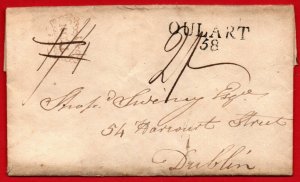 OULART
58
2/
Strop.d Sweny Esqr.
54 Harcourt Street
Dublin